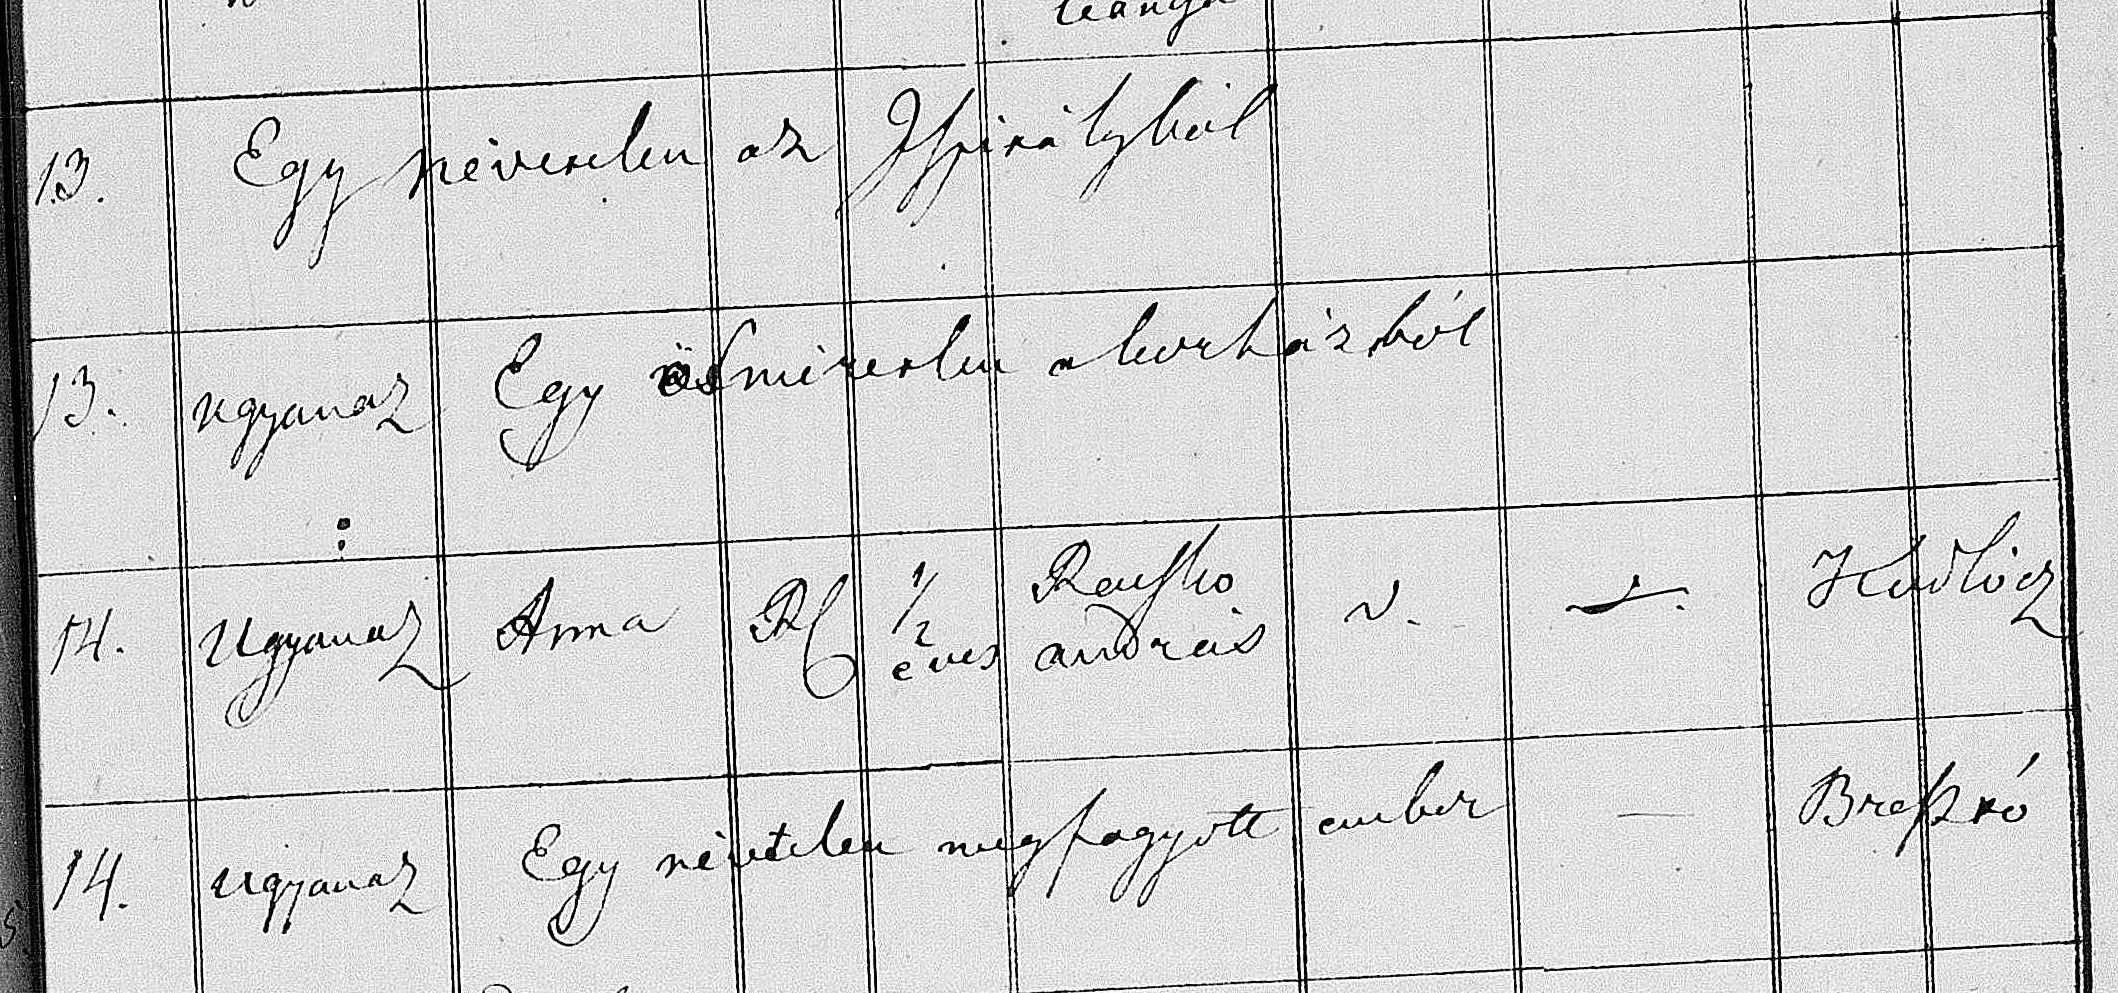 leánya
13. Egy névtelen az Ispitályból
13. ugyanaz Egy ösmeretlen a korházból
14. Ugyanaz Anna RC 1/2 éves Rausko andrás v. —. Hudlócz
14. ugyanaz Egy névtelen megfagyott ember — Breszró